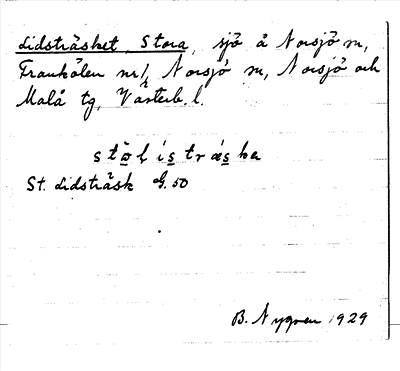 Lidsträsket, Stora, sjö å Norsjö sn,
Framkölen nr 1/2 Norsjö sn, Norsjö och
Malå tg, Västerb. l.
stōl ístrǽska
St. Lidsträsk G. 50
B. Nygren 1929